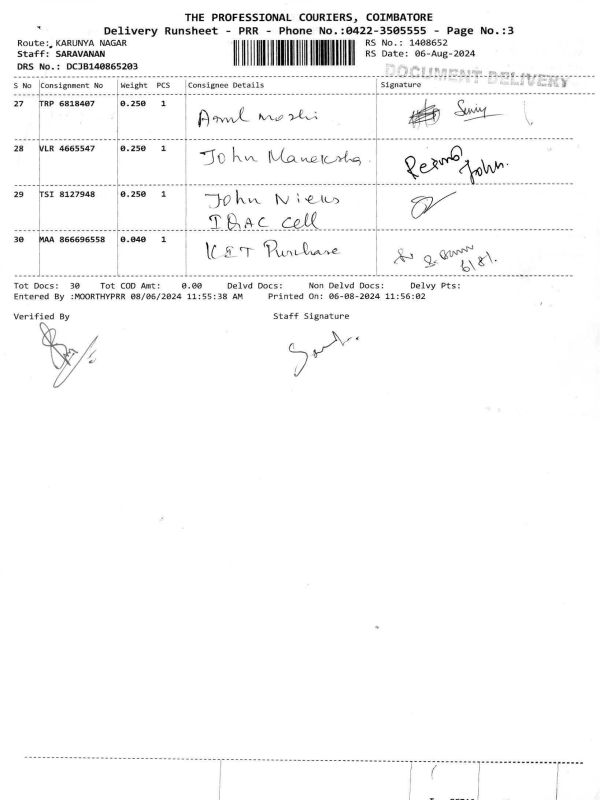 THE PROFESSIONAL COURIERS, COIMBATORE
Delivery Runsheet - PRR - Phone No.:0422-3505555 - Page No.:3
Route: KARUNYA NAGAR RS No.: 1408652
Staff: SARAVANAN RS Date: 06-Aug-2024
DRS No.: DCJB140865203
DOCUMENT DELIVERY
S No Consignment No Weight PCS Consignee Details Signature
27 TRP 6818407 0.250 1
28 VLR 4665547 0.250 1 John Maneksha John.
29 TSI 8127948 0.250 1 John Nieus
IQAC Cell
30 MAA 866696558 0.040 1 KIT Purchase
6/8/.
Tot Docs: 30 Tot COD Amt: 0.00 Delvd Docs: Non Delvd Docs: Delvy Pts:
Entered By :MOORTHYPRR 08/06/2024 11:55:38 AM Printed On: 06-08-2024 11:56:02
Verified By Staff Signature